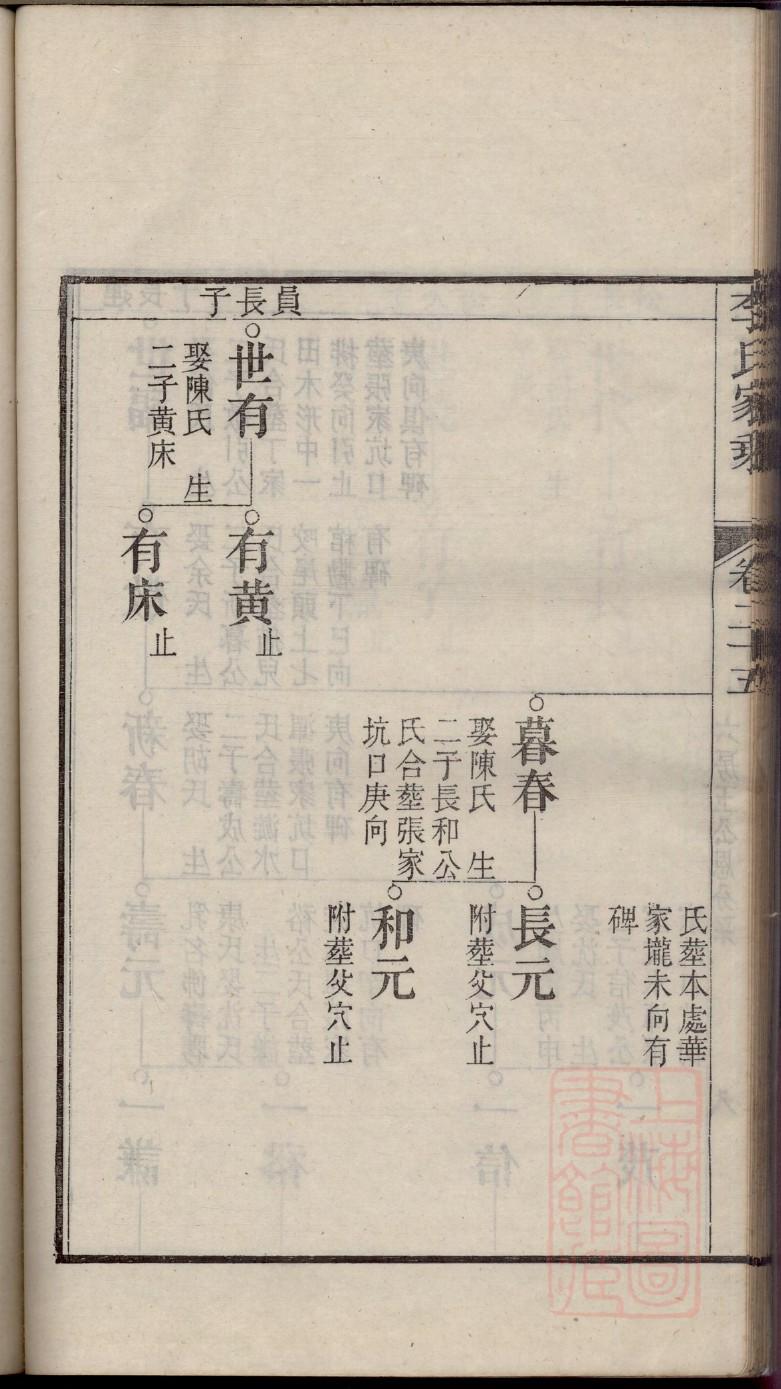 李氏家乘
卷二十五
氏塟本處華
家壠未向有
碑
暮春
娶陳氏 生
二子長和公
氏合塟張家
坑口庚向
長元
附塟父穴止
和元
附塟父穴止
員長子
世有
娶陳氏 生
二子黄床
有黄
止
有床
止
上海圖
書館藏